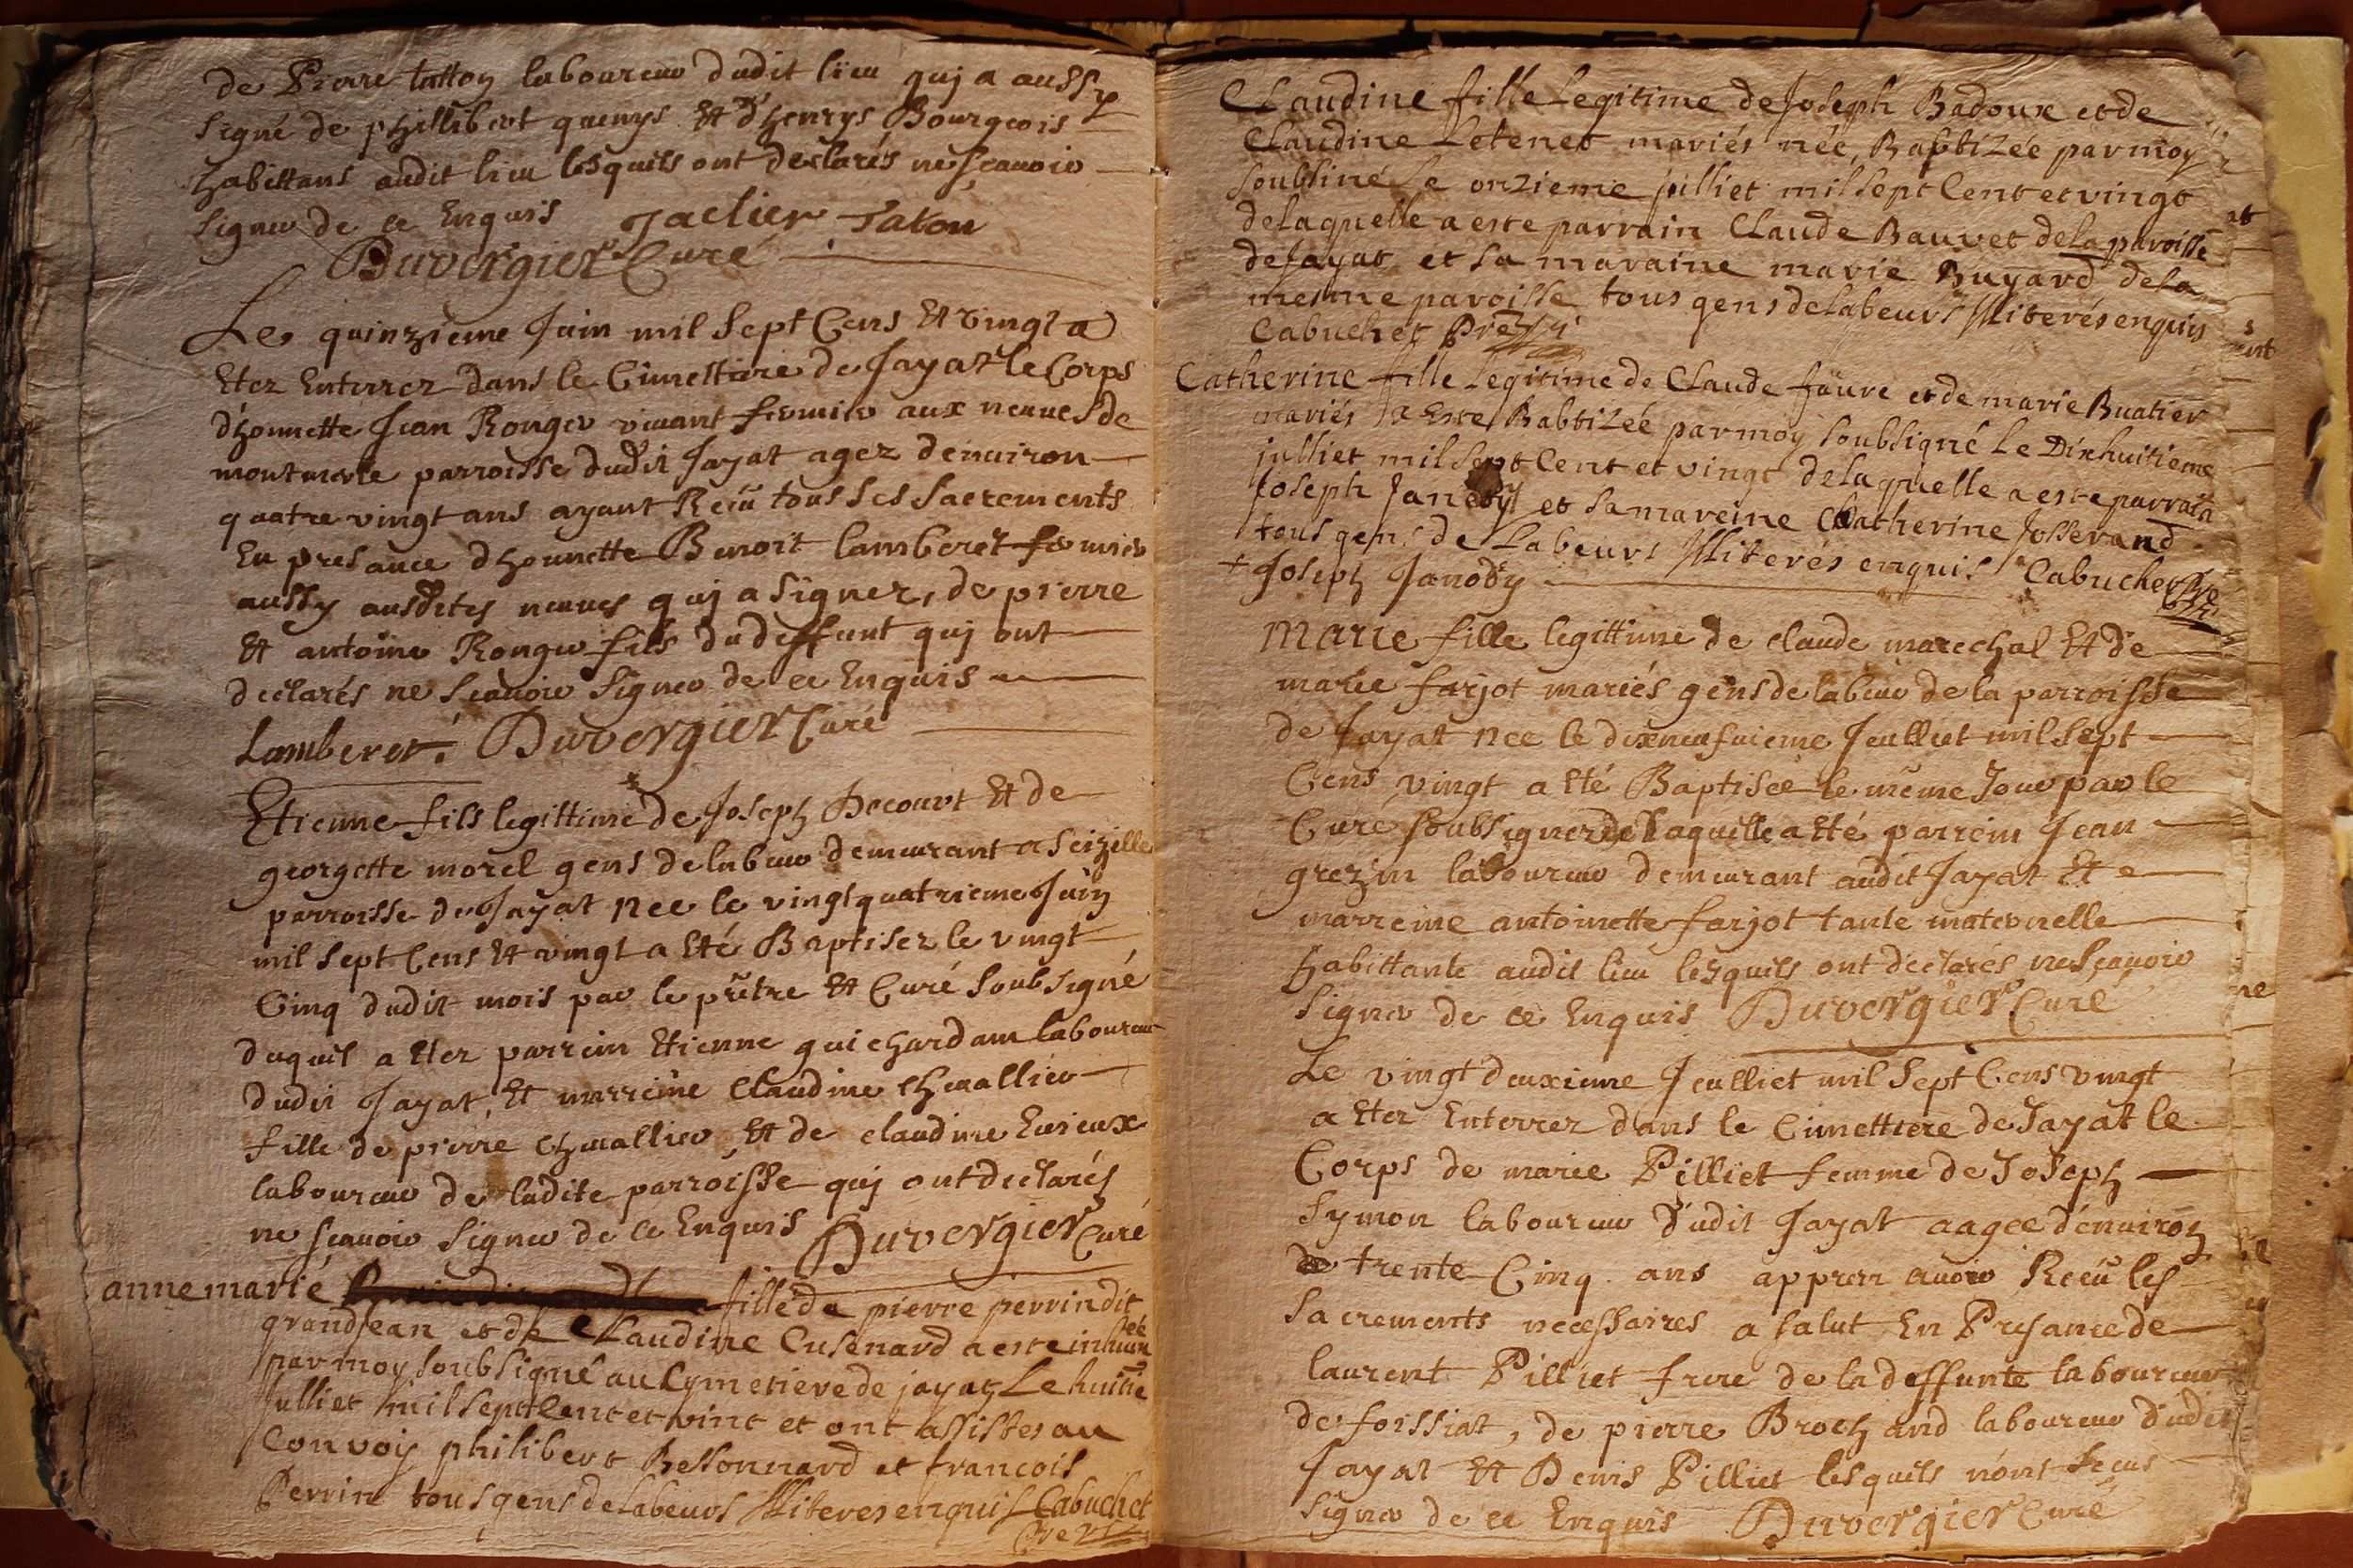 de Pierre tatton laboureur dudit lieu quj a aussy
signé de phillibert quenys Et d'henrys Bourgeois
habittans audit lieu lesquels ont declarés ne sçauoir
signer de ce Enquis Jaclier Taton
Duvergier Curé
Le quinzieme Juin mil sept Cens Et vingt a
Etez Enterrez dans le Cimettiere de Jayat le Corps
d'honnette Jean Ronger viuant fermier aux neuues de
parroisse dudit Jayat agez d'enuiron
quatre vingt ans ayant Reçu tous ses sacrements
En presance d'honnette Benoit lamberet fermier
aussy ausdites neuues quj a signez, de pierre
Et antoine Ronger fils du deffunt quj ont
declarés ne sçauoir signer de ce Enquis
Lamberet. Duvergier Curé
Etienne fils legittime de Joseph Decourt Et de
georgette morel gens de labeur demeurant a seizille
parroisse de Jayat nee le vingt quatrieme Juin
mil sept Cens Et vingt a Eté Baptisez le vingt
Cinq dudit mois par le prêtre Et Curé soubsigné
duquel a Etez parrein Etienne guichardam laboureur
dudit Jayat, Et marreine Claudine cheuallier
fille de pierre cheuallier Et de claudine Eurieux
laboureur de ladite parroisse quj ont declarés
ne sçauoir signer de ce Enquis Duvergier Curé
anne marie fille de pierre perrin dit
grandjean et de Claudine Cusenard a esté inhumée
par moy soubsigné au Cymetiere de jayat Le huitie
Julliet mil sept Cent et vint et ont assistes au
Convoiy philibert Bellonnard et francois
Perrin tous gens de Labeurs Illiteres enquis Cabuchet
Claudine fille Legitime de Joseph Badoux et de
Claudine Letenet mariés née, Baptizée par moy
soubsiné Le onzieme julliet mil sept Cent et vingt
de laquelle a este parrain Claude Bauvet de la paroisse
de Jayat et sa maraine marie Buyard de la
mesme paroisse tous gens de labeurs Illiterés enquis
Cabuchet
Catherine fille Legitime de Claude faure et de marie Buatier
mariés a Este Babtizée par moy soubsigné Le Dixhuitieme
julliet mil sept Cent et vingt de laquelle a este parrain
Joseph Janody et sa mareine Catherine Josserand
tous gens de Labeurs Illiterés enquis Cabuchet
+ Joseph Janody
Marie fille legittime de claude marechal Et de
marie farjot mariés gens de labeur de la parroisse
de Jayat nee le dixneufuieme Jeulliet mil sept
Cens vingt a Eté Baptisée le même Jour par le
Curé soubsigner de laquelle a Eté parrein Jean
grezin laboureur demeurant audit Jayat Et
marreine antoinette farjot tante maternelle
habittante audit lieu lesquels ont declarés ne sçauoir
signer de ce Enquis Duvergier Curé
Le vingt deuxieme Jeulliet mil sept Cens vingt
a Etez Enterrez dans le Cimettiere de Jayat le
Corps de marie Pilliet femme de Joseph
Symon laboureur dudit Jayat aagee d'enuiron
trente Cinq ans apprez auoir Reçu les
sacrements necessaires a salut En Presance de
laurent Pilliet frere de la deffunte laboureur
de foissiat, de pierre Brochand laboureur dudit
Jayat Et Denis Pilliet lesquels n'ont sceus
signer de ce Enquis Duvergier Curé